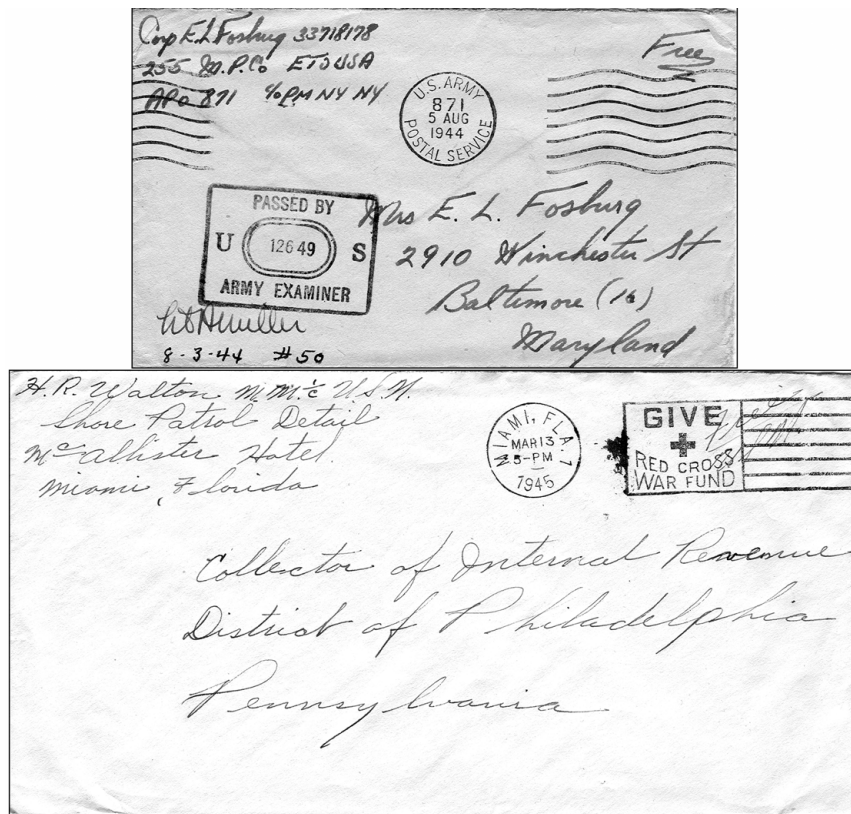 Corp E. L. Fosburg 33718178
255 M.P. Co ETOUSA
APO 871 c/o PM NY NY
Free
U.S. ARMY
871
5 AUG
1944
POSTAL SERVICE
PASSED BY
U 12649 S
ARMY EXAMINER
8-3-44 #50
Mrs E. L. Fosburg
2910 Winchester St
Baltimore (16)
Maryland
H. R. Walton M.M.1/c U.S.N.
Shore Patrol Detail
McAllister Hotel
Miami, Florida
MIAMI, FLA. 1
MAR 13
5-PM
1945
GIVE
RED CROSS
WAR FUND
Collector of Internal Revenue
District of Philadelphia
Pennsylvania